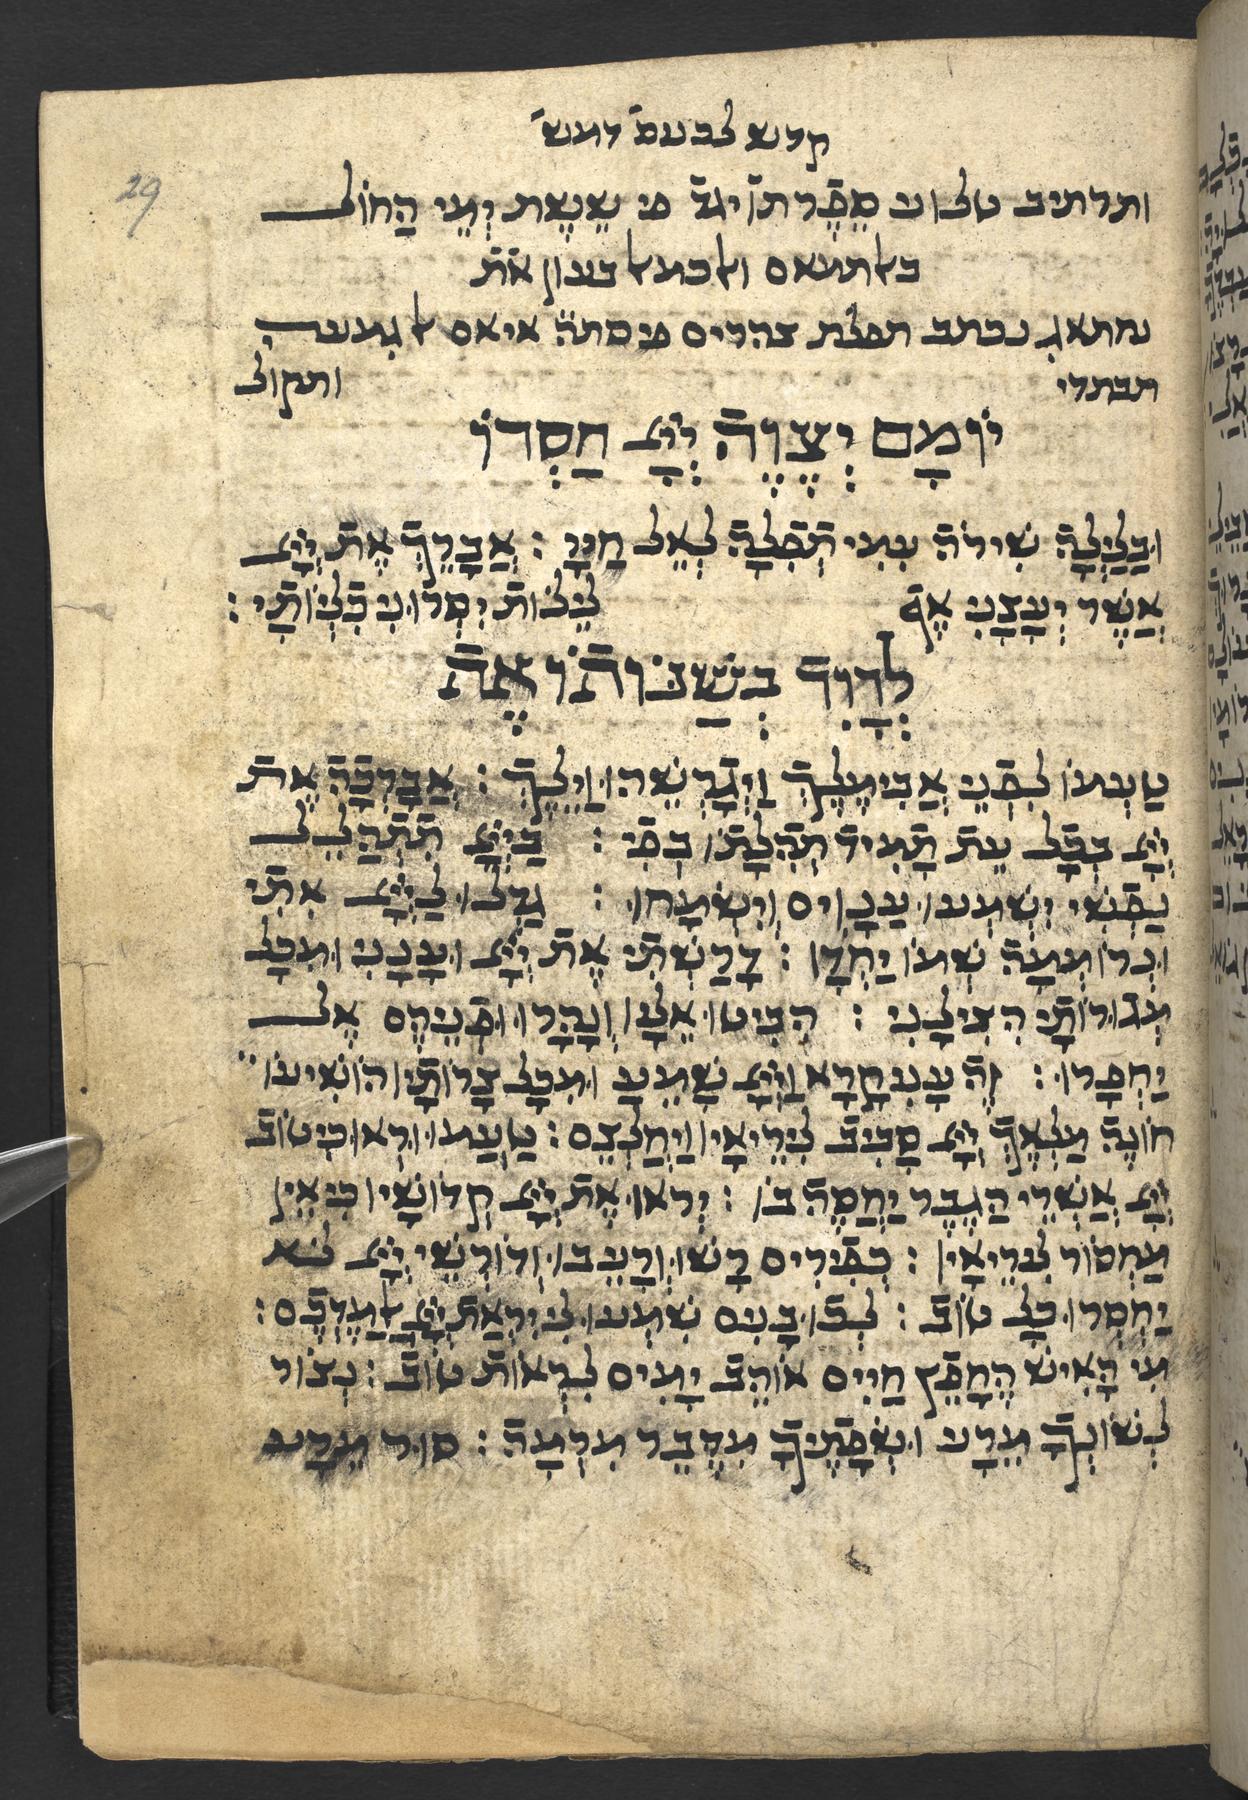 קדש לבעמ̇ דמש̇
ותרתיב טלוע סֵפֶר תו̇ יגד̇ פי שֵׁשֶׁת יְמֵי הַחוֹל
באלתמאם ואלכמאל בעון את̇
נחתאג נכתב תפלת צהרים פי סתה̈ איאם אלגמעה
תבתדי ותקול
יוֹמָם יְצַוֶּה יְיָ חַסְדּוֹ
וּבַלַּיְלָה שִׁירֹה עִמִּי תְּפִלָּה לְאֵל חַיָּי : אֲבָרֵךְ אֶת יְיָ
אֲשֶׁר יְעָצָנִי אֶף לֵילוֹת יִסְּרוּנִי כִלְיוֹתָי :
לְדָוִד בְּשַׁנּוֹתוֹ אֶת
טַעְמוֹ לִפְנֵי אֲבִימֶלֶךְ וַיְגָרְשֵׁהוּ וַיֵּלֶךְ : אֲבָרְכָה אֶת
יְיָ בְּכָל עֵת תָּמִיד תְּהִלָּתוֹ בְּפִי : בַּיְיָ תִּתְהַלֵּל
נַפְשִׁי יִשְׁמְעוּ עֲנָוִים וְיִשְׂמָחוּ : גַּדְּלוּ לַיְיָ אִתִּי
וּנְרוֹמְמָה שְׁמוֹ יַחְדָּו : דָּרַשְׁתִּי אֶת יְיָ וְעָנָנִי וּמִכָּל
מְגוּרוֹתַי הִצִּילָנִי : הִבִּיטוּ אֵלָיו וְנָהָרוּ וּפְנֵיהֶם אַל
יַחְפָּרוּ : זֶה עָנִי קָרָא וַיְיָ שָׁמֵעַ וּמִכָּל צָרוֹתָיו הוֹשִׁיעוֹ
חוֹנֶה מַלְאַךְ יְיָ סָבִיב לִירֵיאָיו וַיְחַלְּצֵם : טַעֲמוּ וּרְאוּ כִּי טוֹב
יְיָ אַשְׁרֵי הַגֶּבֶר יַחֲסֶה בּוֹ : יְראוּ אֶת יְיָ קְדוֹשָׁיו כִּי אֵין
מַחְסוֹר לִרֵיאָיו : כְּפִירִים רָשׁוּ וְרָעֵבוּ וְדוֹרְשֵׁי יְיָ לֹא
יַחְסְרוּ כָל טוֹב : לְכוּ בָנִים שִׁמְעוּ לִי יִרְאַת יְיָ אֲלַמֶּדְכֶם :
מִי הָאִישׁ הֶחָפֵץ חַיִּים אוֹהֵב יָמִים לִרְאוֹת טוֹב : נְצוֹר
לְשׁוֹנְךָ מֵרָע וּשְׂפָתֶיךָ מִדַּבֵּר מִרְמָה : סוּר מֵרָע
29